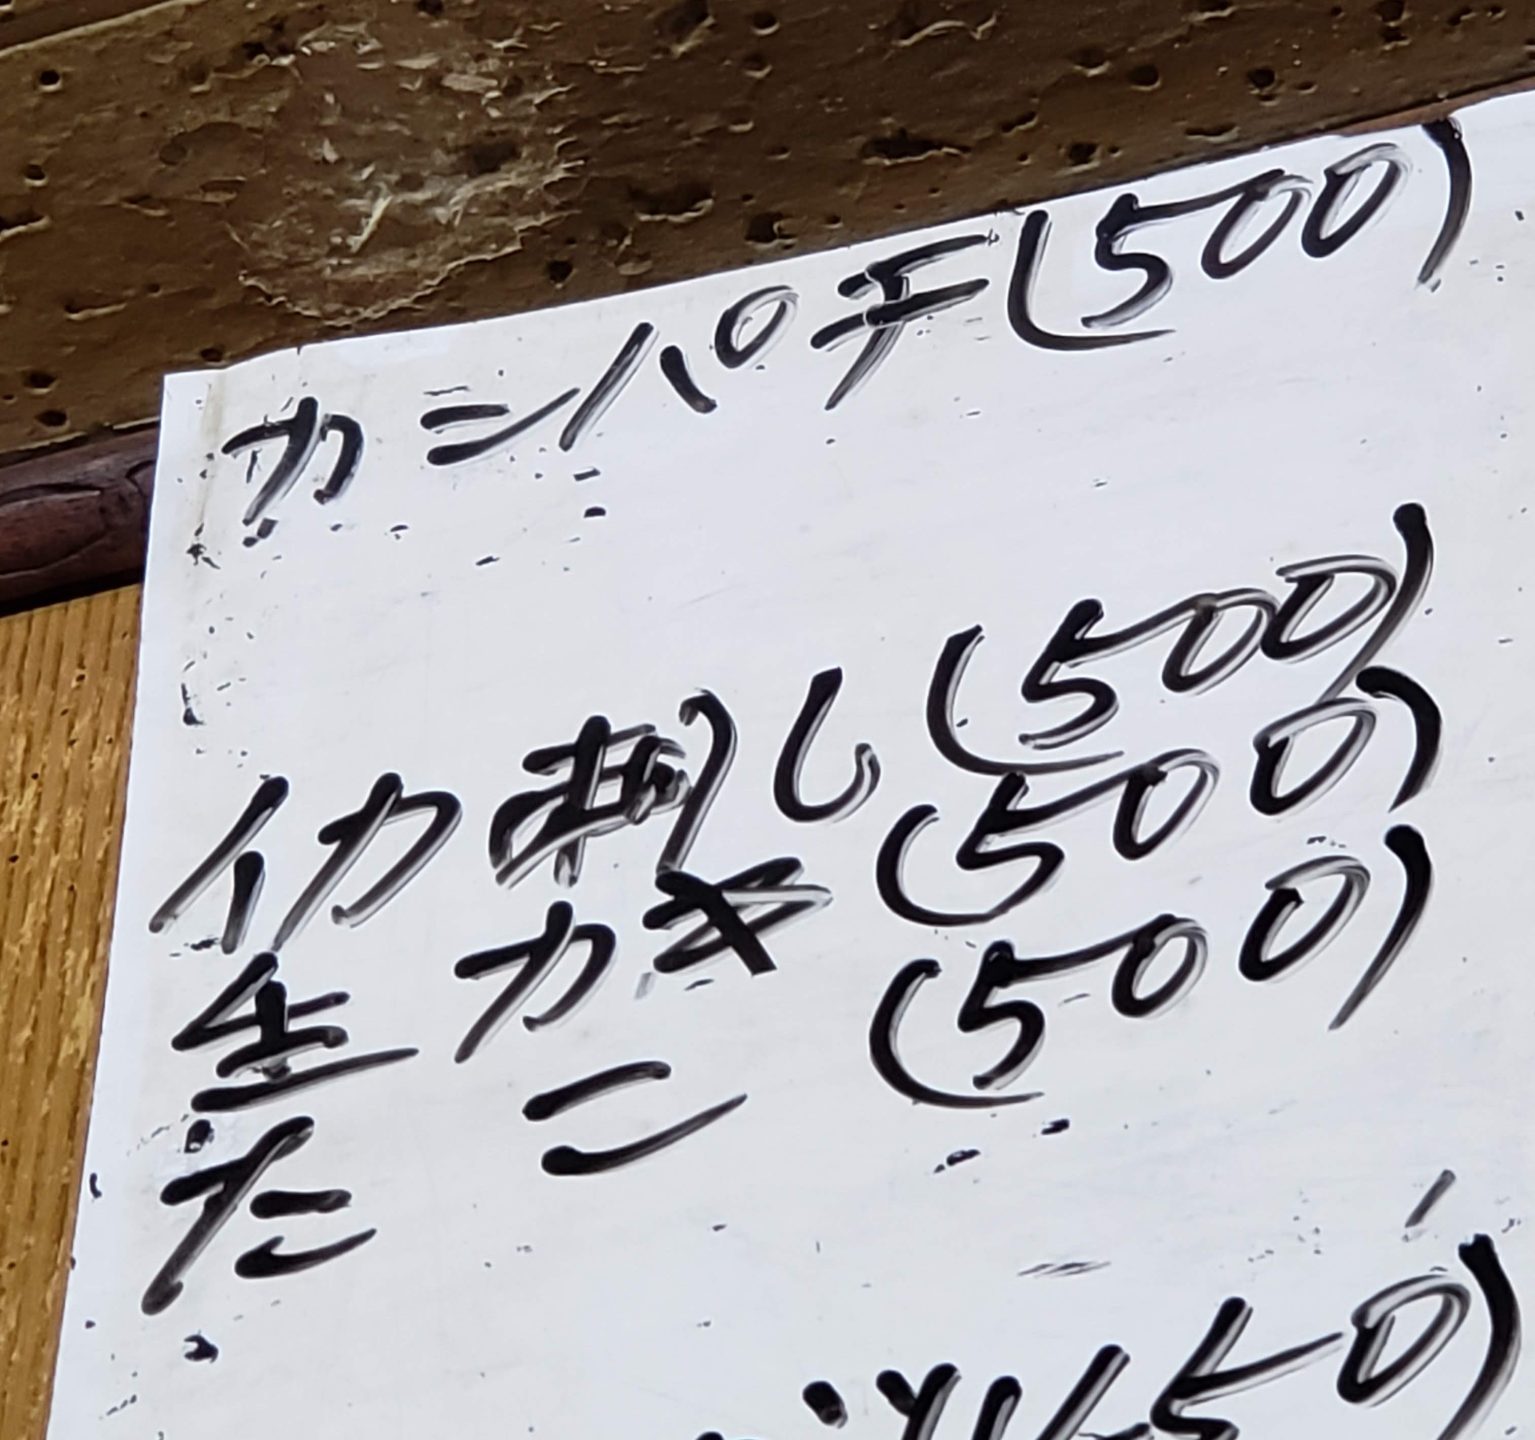 カンパチ(500)
イカ刺し(500)
生カキ(500)
たこ(500)
50)